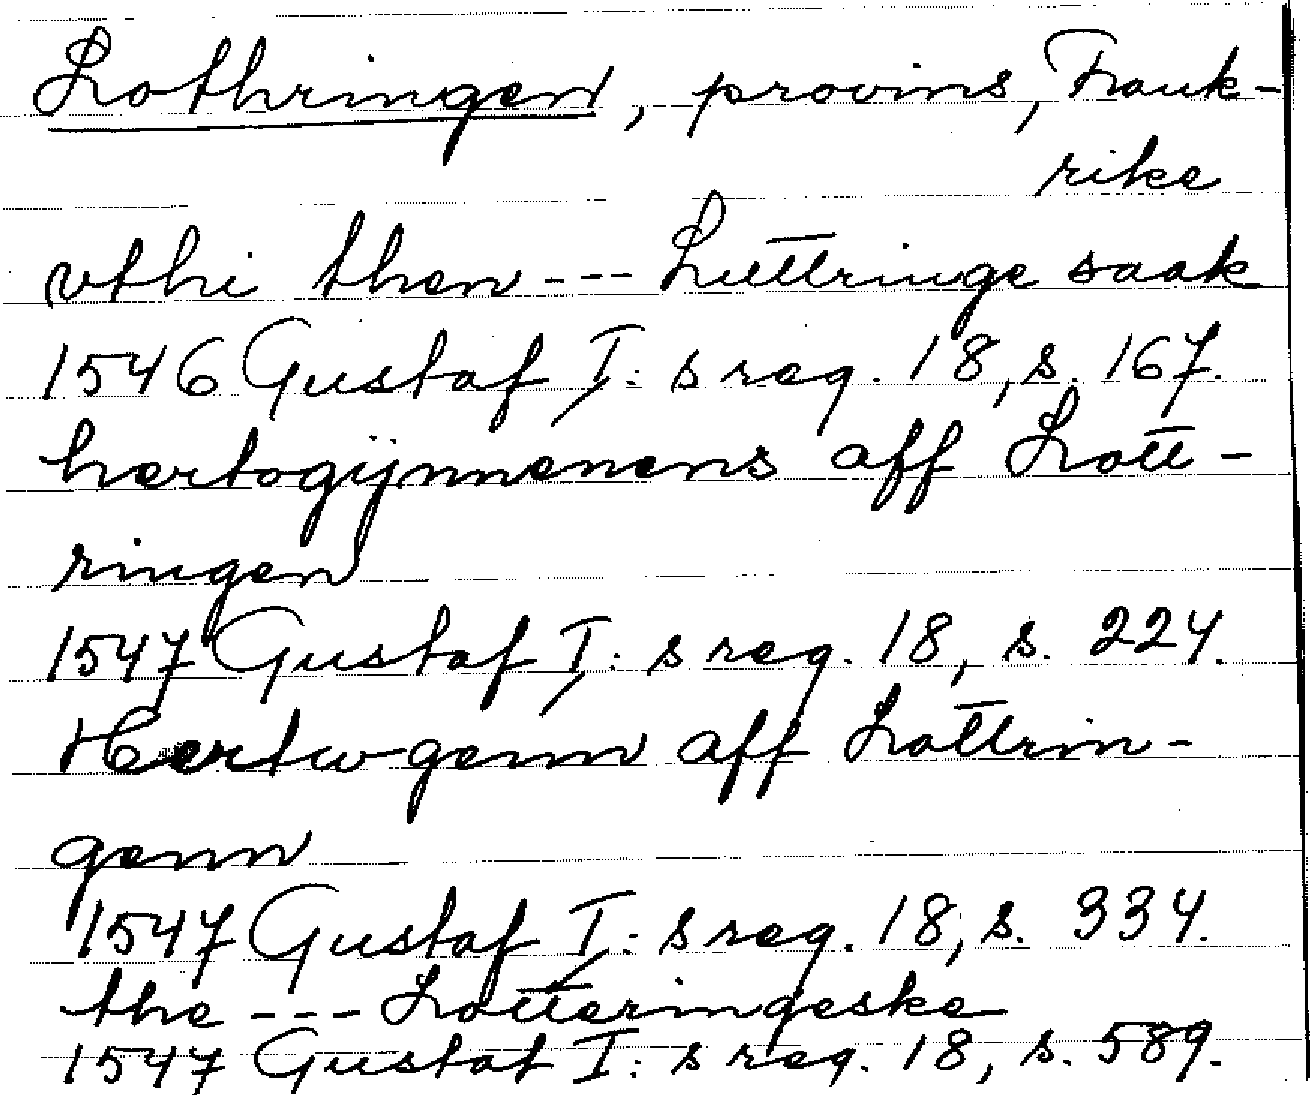 Lothringen, provins, Frank-
rike
vthi then --- Luttringe saak
1546 Gustaf I:s reg. 18, s. 167.
hertogÿnnenens aff Lott-
ringen
1547 Gustaf I:s reg. 18, s. 224.
Hertwgenn aff Lottrin-
genn
1547 Gustaf I:s reg. 18, s. 334.
the --- Lotteringeske
1547 Gustaf I:s reg. 18, s. 589.